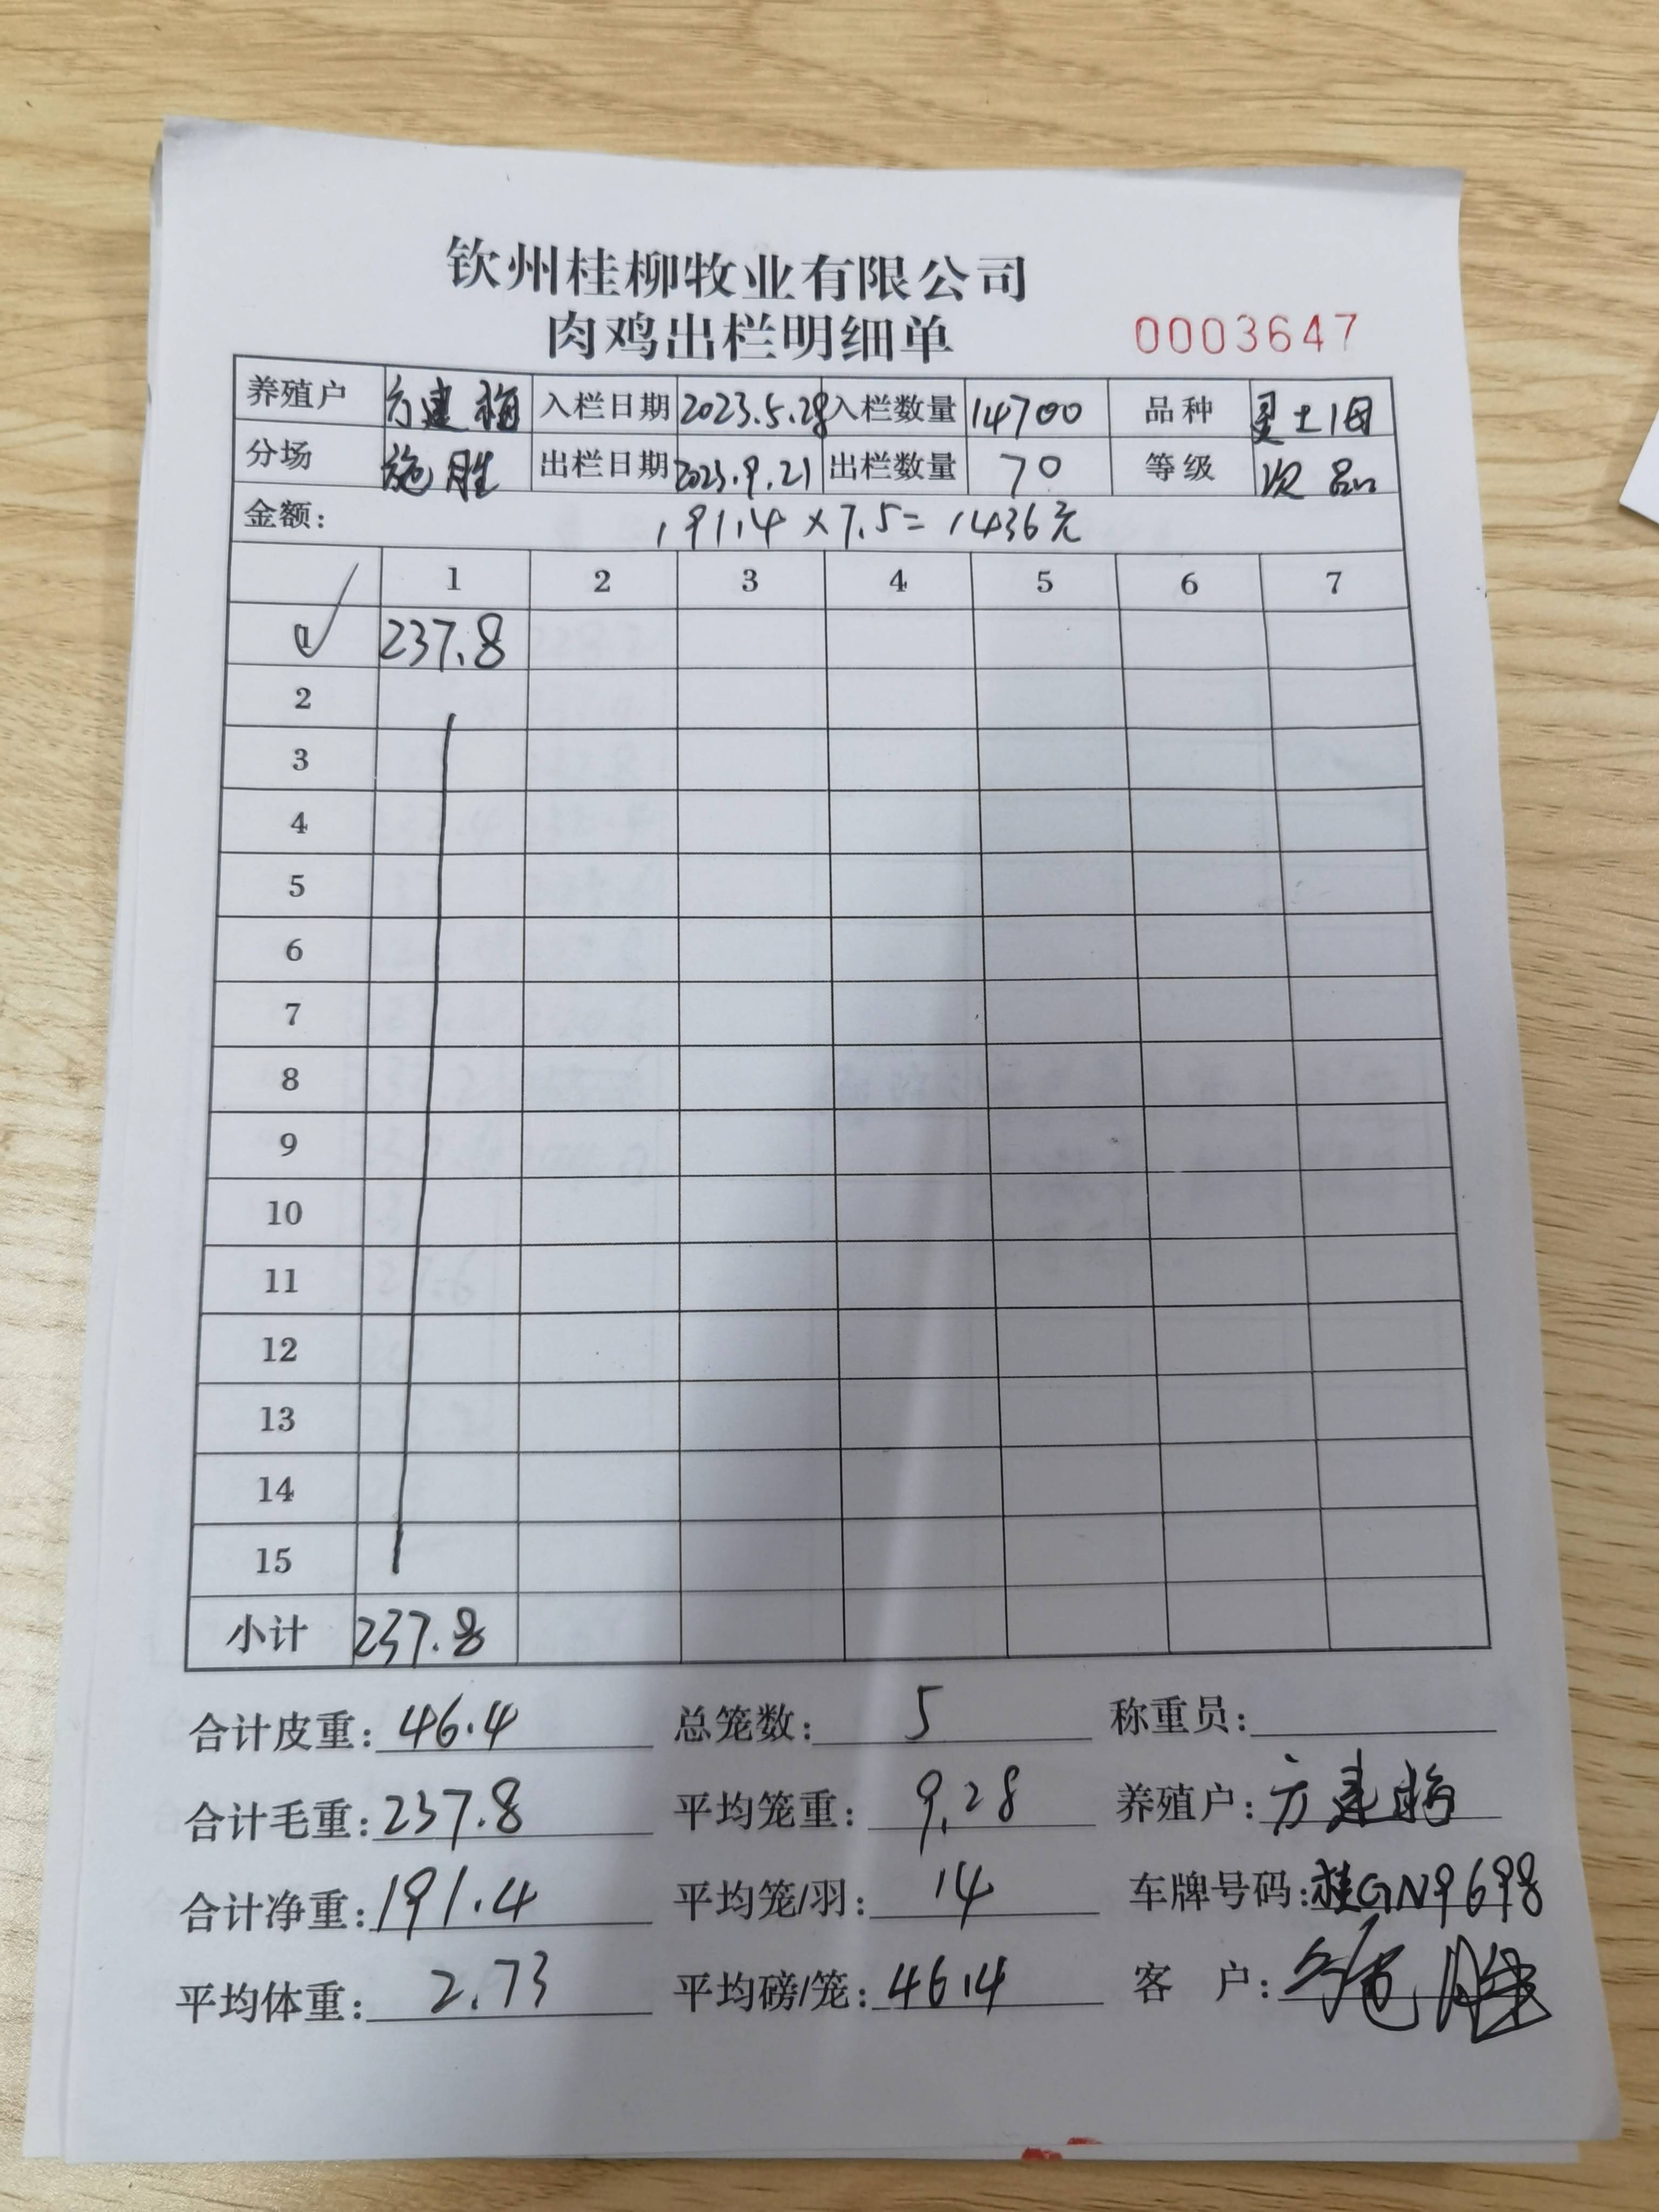 钦州桂柳牧业有限公司
肉鸡出栏明细单 0003647
养殖户 方建梅 入栏日期 2023.5.28 入栏数量 14700 品种 灵土1母
分场 施胜 出栏日期 2023.9.21 出栏数量 70 等级 次品
金额: 191.4×7.5=1436元
1 2 3 4 5 6 7
1 237.8
2
3
4
5
6
7
8
9
10
11
12
13
14
15
小计 237.8
合计皮重: 46.4 总笼数: 5 称重员:
合计毛重: 237.8 平均笼重: 9.28 养殖户: 方建梅
合计净重: 191.4 平均笼/羽: 14 车牌号码: 桂GN9698
平均体重: 2.73 平均磅/笼: 46.4 客 户: 施胜